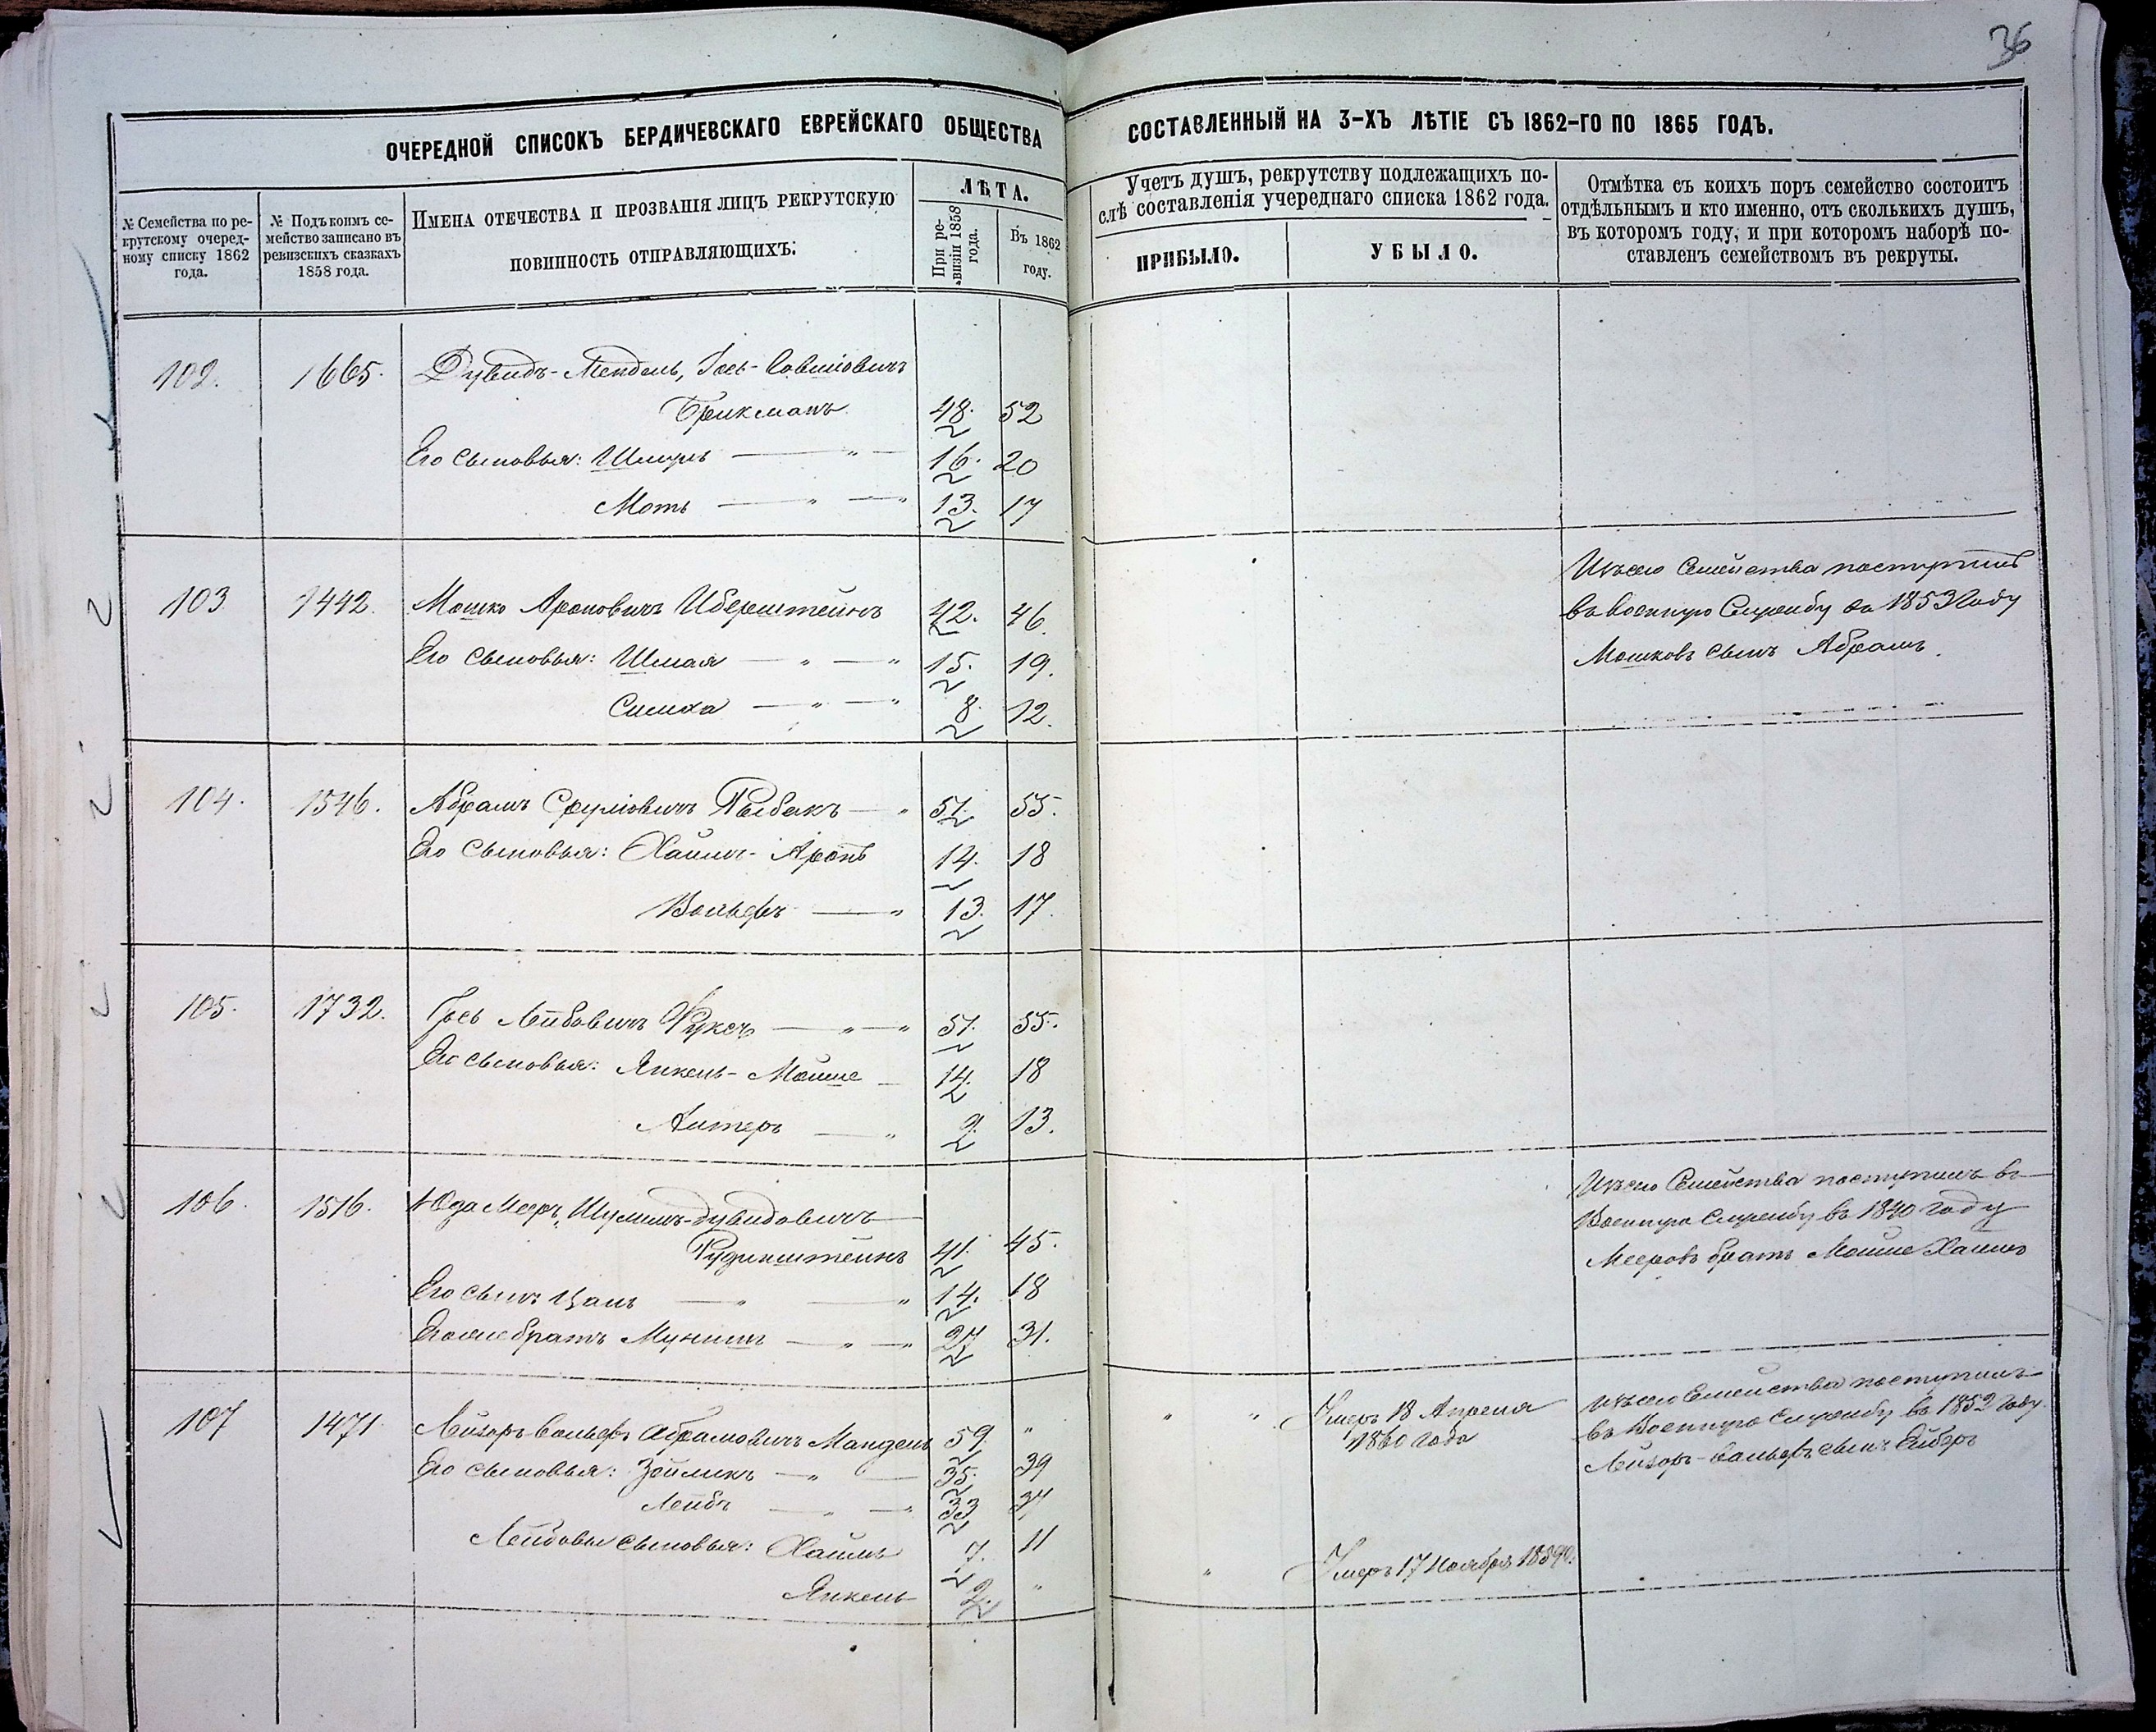 36
ОЧЕРЕДНОЙ СПИСОКЪ БЕРДИЧЕВСКАГО ЕВРЕЙСКАГО ОБЩЕСТВА
СОСТАВЛЕННЫЙ НА 3-ХЪ ЛѢТІЕ СЪ 1862-ГО ПО 1865 ГОДЪ.
№ Семейства по ре-
крутскому очеред-
ному списку 1862
года.
№ Подъ коимъ се-
мейство записано въ
ревизскихъ сказкахъ
1858 года.
ИМЕНА ОТЕЧЕСТВА И ПРОЗВАНІЯ ЛИЦЪ РЕКРУТСКУЮ
ПОВИННОСТЬ ОТПРАВЛЯЮЩИХЪ:
ЛѢТА.
При ре-
визіи 1858
года.
Въ 1862
году.
Учетъ душъ, рекрутству подлежащихъ по-
слѣ составленія учереднаго списка 1862 года.
ПРИБЫЛО.
УБЫЛО.
Отмѣтка съ коихъ поръ семейство состоитъ
отдѣльнымъ и кто именно, отъ сколькихъ душъ,
въ которомъ году, и при которомъ наборѣ по-
ставленъ семействомъ въ рекруты.
102. 1665. Дувидъ-Мендель,
Брикманъ 48. 52
Его сыновья: Шмуль — " — 16. 20
Моть — " — " 13. 17
103 1442. Мошко Ароновичъ Иберштейнъ 42. 46.
Его сыновья: Шмая — " — " 15. 19.
Симха — " — " 8. 12.
Изъ сего Семейства поступилъ
въ военную Службу въ 1853 Году
Мошковъ сынъ Абрамъ.
104. 1546. Абрамъ Сруліовичъ Рыбакъ — " 51. 55.
Его Сыновья: Хаимъ-Аронъ 14. 18
Вольфъ — " 13. 17.
105. 1732. Гось Лейбовичъ Фуксъ — " — " 51. 55.
Его сыновья: Янкель-Мойше — 14. 18
Алтеръ — " 9. 13.
106. 1516. Юда Мееръ, Шулимъ-Дувидовичъ
Рудинштейнъ 41. 45.
Его сынъ Цаль — " — " 14. 18
Его же братъ Мунишъ — " — " 27 31.
Изъ сего Семейства поступилъ въ
Военную Службу въ 1840 году
Мееровъ братъ Мошие Хаимъ
107 1471 Лейзоръ-Вольфъ Абрамовичъ Мандель 59. "
Его сыновья: Зейликъ — " — 35. 39
Лейбъ — " — " 33 37
Лейбовы сыновья: Хаимъ 7. 11
Янкель 2. "
" " Умеръ 18 Апреля
1860 года
" Умеръ 17 Ноября 1859г.
Изъ сего Семейства поступилъ
въ Военную Службу въ 1852 Году.
Лейзоръ-Вольфъ сынъ